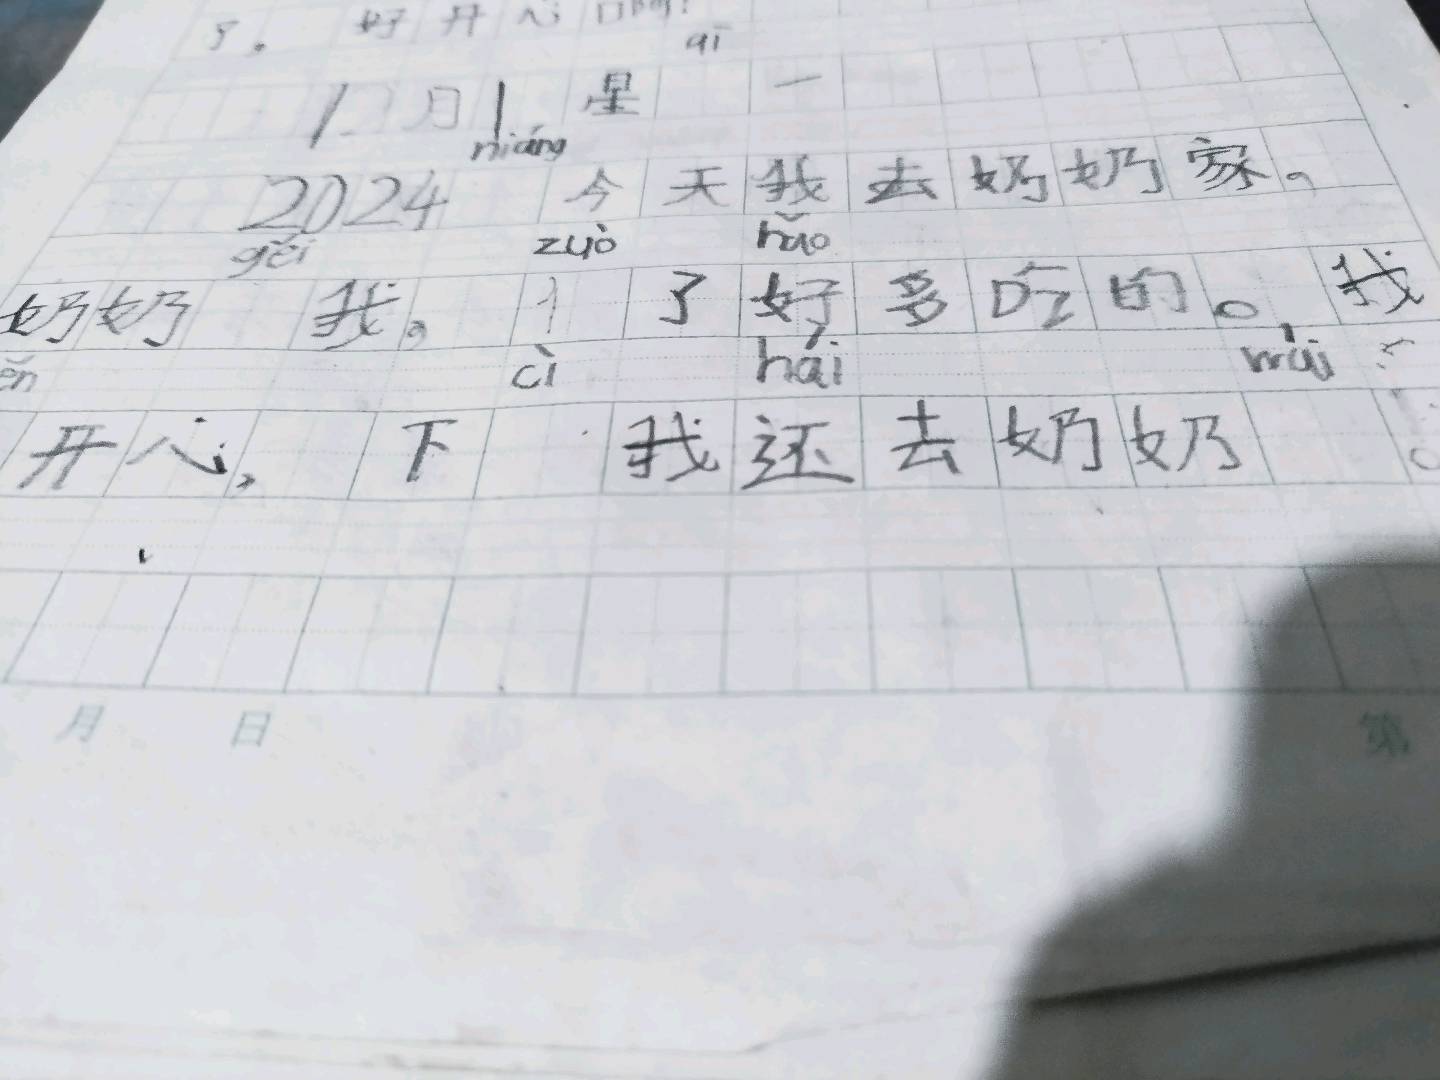 了。 好开心啊!
qī
1月1 星 一
niáng
2024 今天我去奶奶家。
gěi zuò hǎo
奶奶 我。 了好多吃的。我
ěn cì hái
开心, 下 我还去奶奶
月 日 第